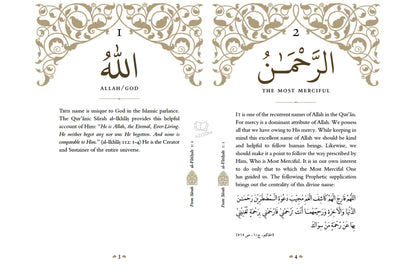 1
اللّٰهُ
ALLAH/GOD
THIS name is unique to God in the Islamic parlance.
The Qur'ānic Sūrah al-Ikhlāṣ provides this helpful
account of Him: "He is Allah, the Eternal, Ever-Living.
He neither begot any nor was He begotten. And none is
comparable to Him." (al-Ikhlāṣ 112: 1-4) He is the Creator
and Sustainer of the entire universe.
From Sūrah al-Fātiḥah
3
2
الرَّحْمَـٰنُ
THE MOST MERCIFUL
IT is one of the recurrent names of Allah in the Qur'ān.
For mercy is a dominant attribute of Allah. We possess
all that we have owing to His mercy. While keeping in
mind this excellent name of Allah we should be kind
and helpful to fellow human beings. Likewise, we
should make it a point to follow the way prescribed by
Him, Who is Most Merciful. It is in our own interest
to do only that to which the Most Merciful One
has guided us. The following Prophetic supplication
brings out the centrality of this divine name:
اللَّهُمَّ فَارِجَ الْهَمِّ كَاشِفَ الْغَمِّ مُجِيبَ دَعْوَةِ الْمُضْطَرِّينَ رَحْمَـٰنَ
الدُّنْيَا وَالْآخِرَةِ وَرَحِيمَهُمَا أَنْتَ تَرْحَمُنِي فَارْحَمْنِي بِرَحْمَةٍ تُغْنِينِي
بِهَا عَنْ رَحْمَةِ مَنْ سِوَاكَ
From Sūrah al-Fātiḥah
4